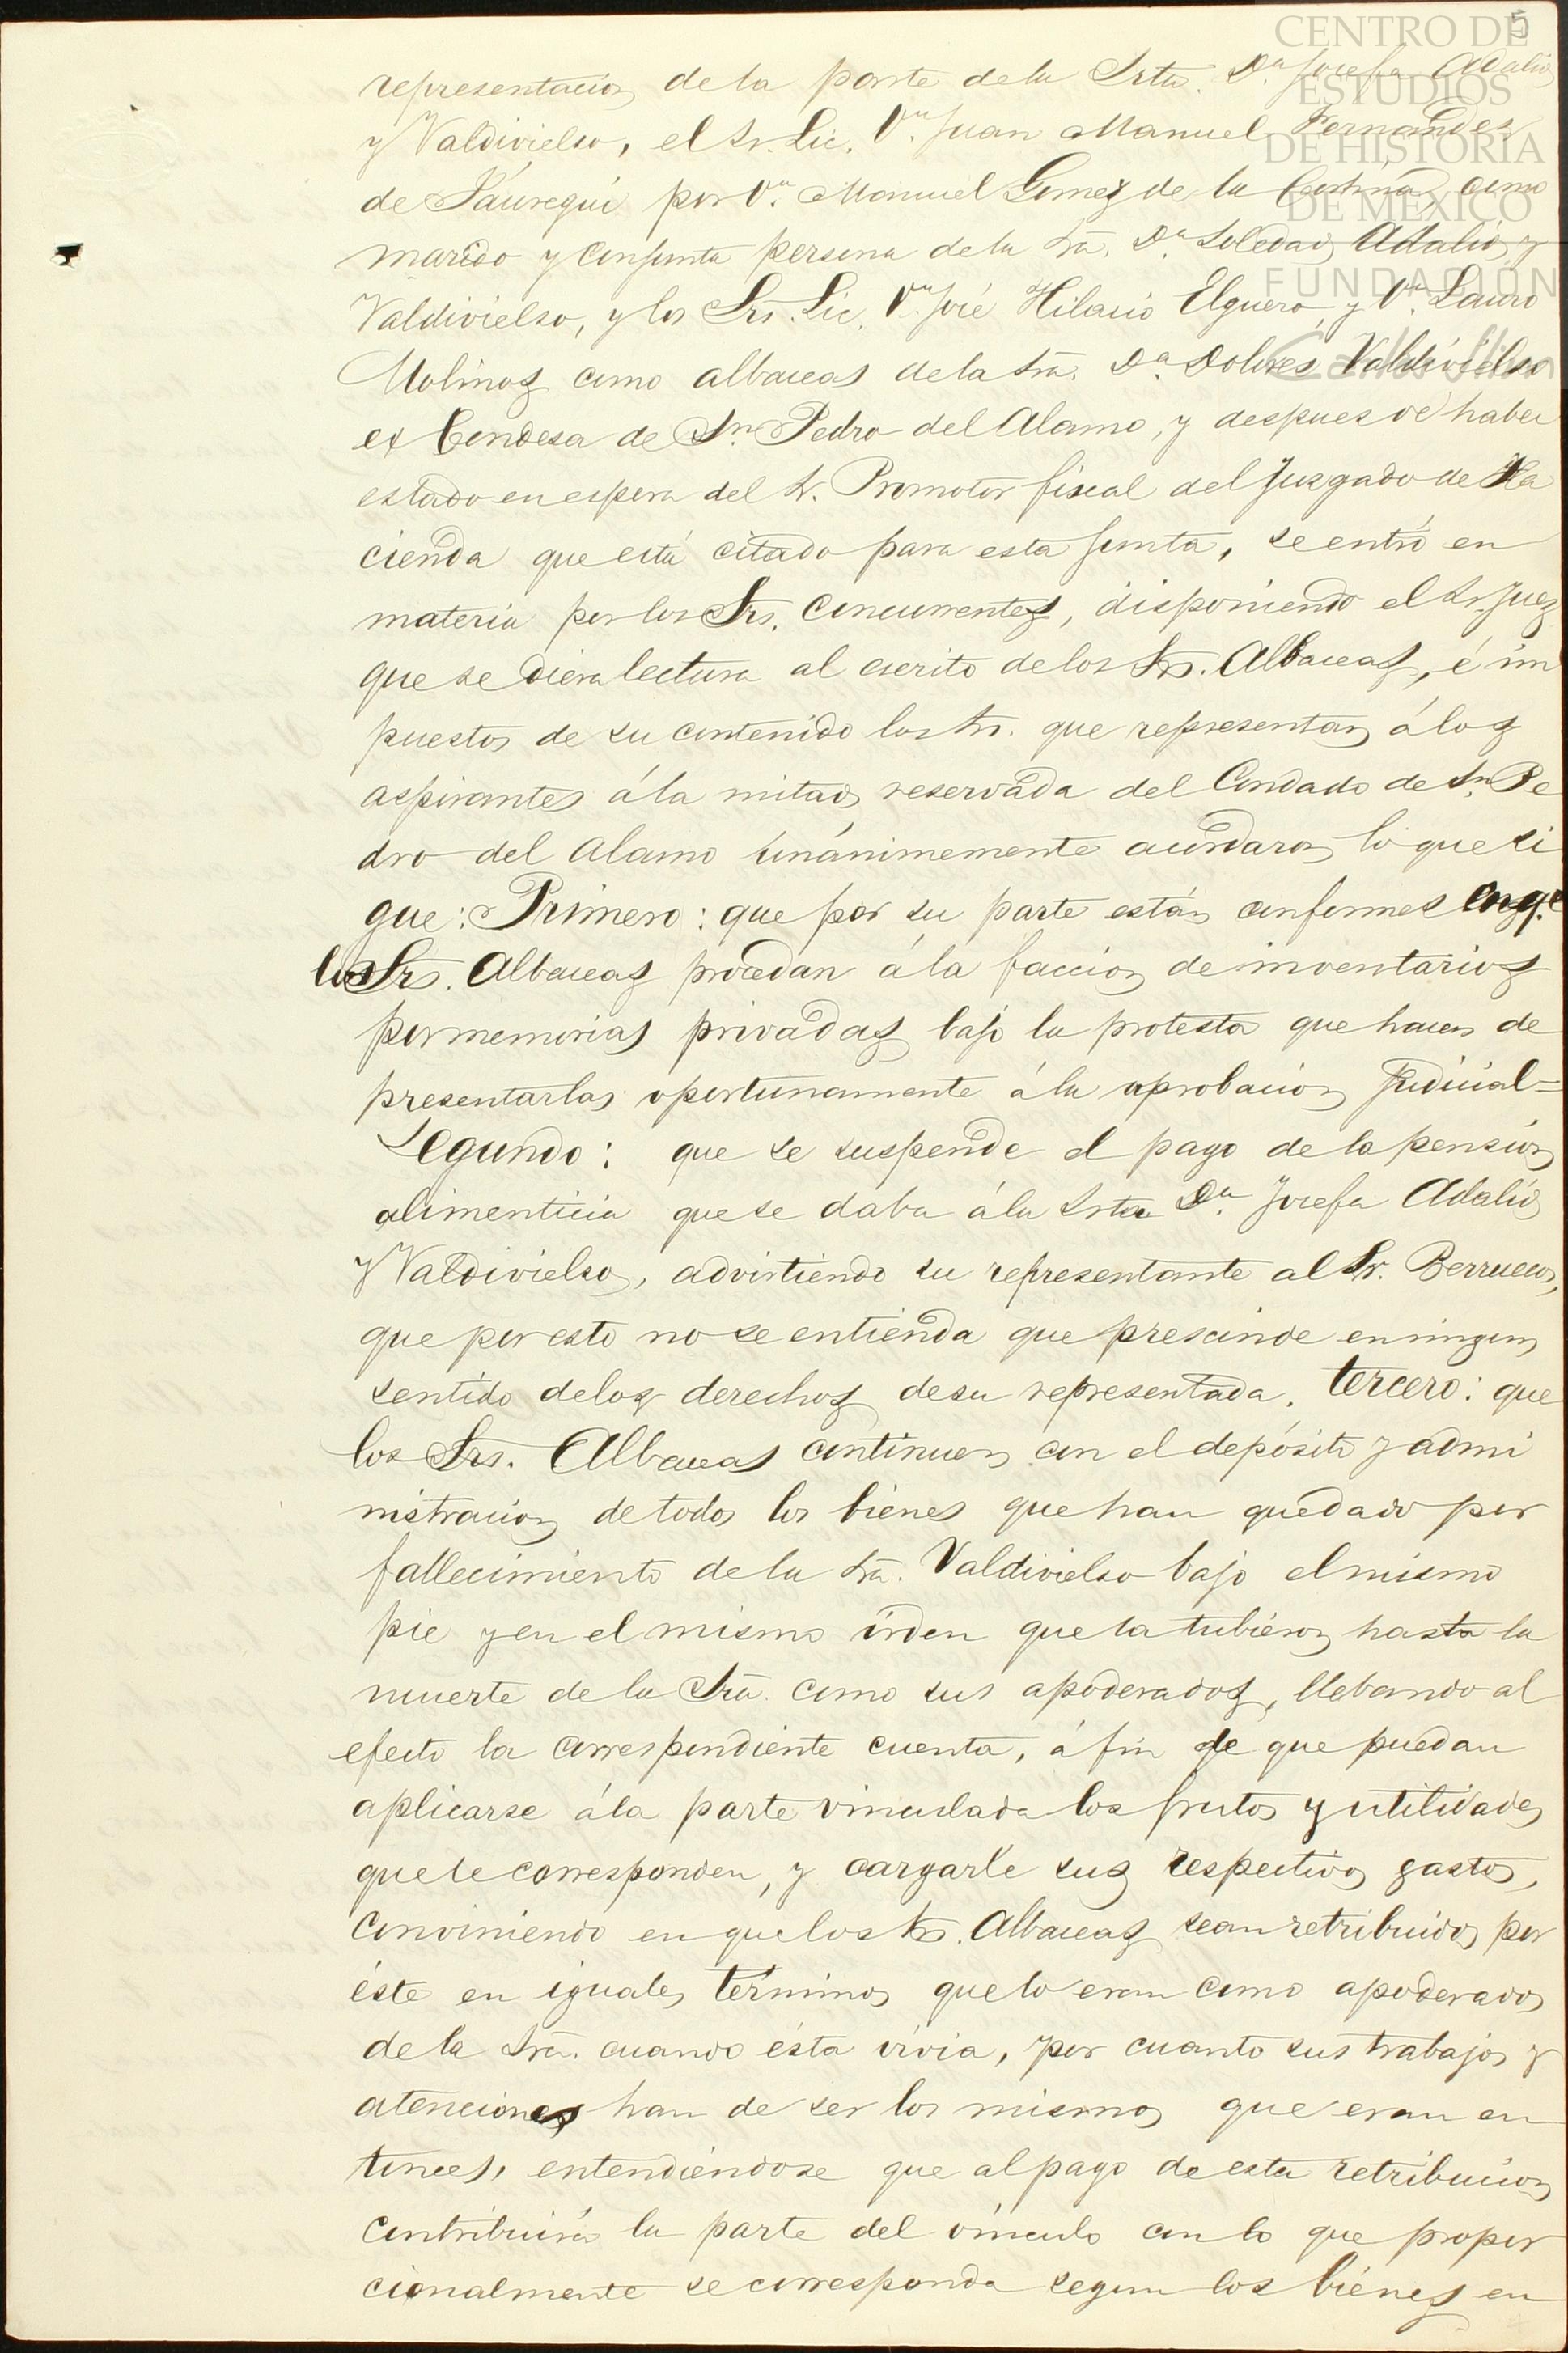 5
CENTRO DE
ESTUDIOS
DE HISTORIA
DE MÉXICO
FUNDACIÓN
Carlos Slim
representacion de la parte de la Srta. Dª Josefa Adalid
y Valdivielso, el Sr. Lic. Dn. Juan Manuel Fernandez
de Jáuregui por Dn. Manuel Gomez de la Cortina como
marido y conjunta persona de la Srã. Dª Soledad Adalid y
Valdivielso, y los Srs. Lic. Dn. José Hilario Elguero y Dn. Lauro
Molinos como albaceas de la Srã. Dª Dolores Valdivielso
ex Condesa de Sn. Pedro del Alamo, y despues de haber
estado en espera del Sr. Promotor fiscal del Juzgado de Ha
cienda que está citado para esta junta, se entró en
materia por los Srs. Concurrentes, disponiendo el Sr. Juez
que se diera lectura al escrito de los Srs. Albaceas, é im
puestos de su contenido los Srs. que representan á los
aspirantes á la mitad reservada del Condado de Sn. Pe
dro del Alamo unánimemente acordaron lo que si
gue: Primero: que por su parte están conformes en q.e
los Srs. Albaceas procedan á la faccion de inventarios
por memorias privadas bajo la protesta que hacen de
presentarlas oportunamente á la aprobacion judicial=
Segundo: que se suspende el pago de la pension
alimenticia que se daba á la Srta Dª Josefa Adalid
y Valdivielso, advirtiendo su representante al Sr. Berruecos,
que por esto no se entienda que prescinde en ningun
sentido de los derechos de su representada. Tercero: que
los Srs. Albaceas continuen con el depósito y admi
nistracion de todos los bienes que han quedado por
fallecimiento de la Srã. Valdivielso bajo el mismo
pie y en el mismo órden que la tubieron hasta la
muerte de la Srã. como sus apoderados, llebando al
efecto la correspondiente cuenta, á fin de que puedan
aplicarse á la parte vinculada los frutos y utilidades
que le corresponden, y cargarle sus respectivos gastos,
conviniendo en que los Srs. Albaceas sean retribuidos por
éste en iguales términos que lo eran como apoderados
de la Srã. cuando ésta vivia, por cuanto sus trabajos y
atenciones han de ser los mismos que eran en
tonces, entendiéndose que al pago de esta retribucion
contribuirá la parte del vínculo con lo que propor
cionalmente le corresponda segun los bienes en